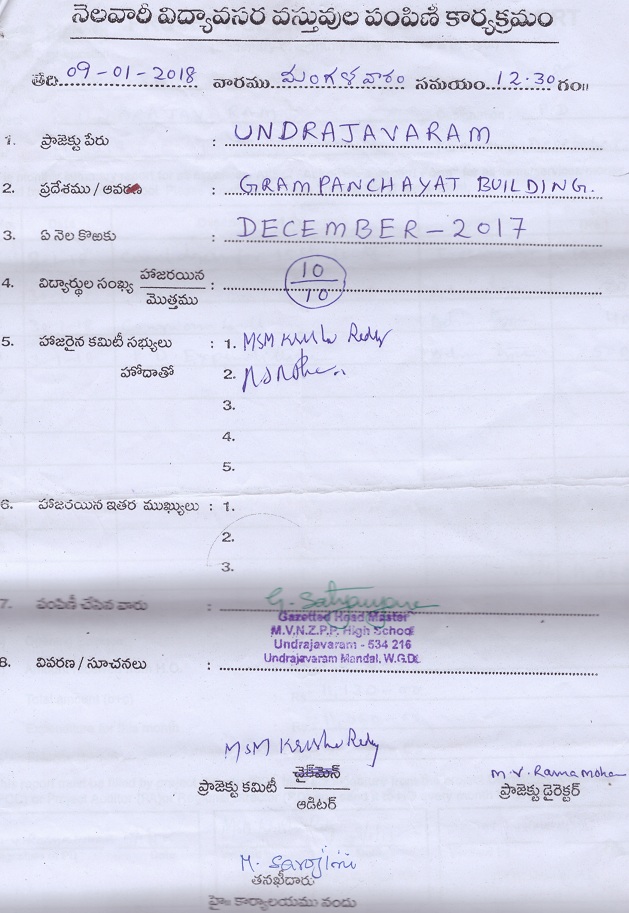 నెలవారీ విద్యావసర వస్తువుల పంపిణీ కార్యక్రమం
తేది 09-01-2018 వారము మంగళవారం సమయం 12.30 గం॥
1. ప్రాజెక్టు పేరు : UNDRAJAVARAM
2. ప్రదేశము / ఆవరణ : GRAMPANCHAYAT BUILDING.
3. ఏ నెల కొఱకు : DECEMBER-2017
4. విద్యార్థుల సంఖ్య హాజరయిన / మొత్తము : 10 / 10
5. హాజరైన కమిటీ సభ్యులు : 1. MSM Krishna Reddy
హోదాతో 2.
3.
4.
5.
6. హాజరయిన ఇతర ముఖ్యులు : 1.
2.
3.
7. పంపిణీ చేసిన వారు : G. Satyanarayana
Gazetted Head Master
M.V.N.Z.P.P. High School
Undrajavaram - 534 216
Undrajavaram Mandal, W.G.Dt.
8. వివరణ / సూచనలు :
MSM Krishna Reddy
ప్రాజెక్టు కమిటీ చైర్మెన్ / ఆడిటర్
M.V. Rama Mohan
ప్రాజెక్టు డైరెక్టర్
M. Sarojini
తనఖీదారు
హై॥ కార్యాలయము నందు